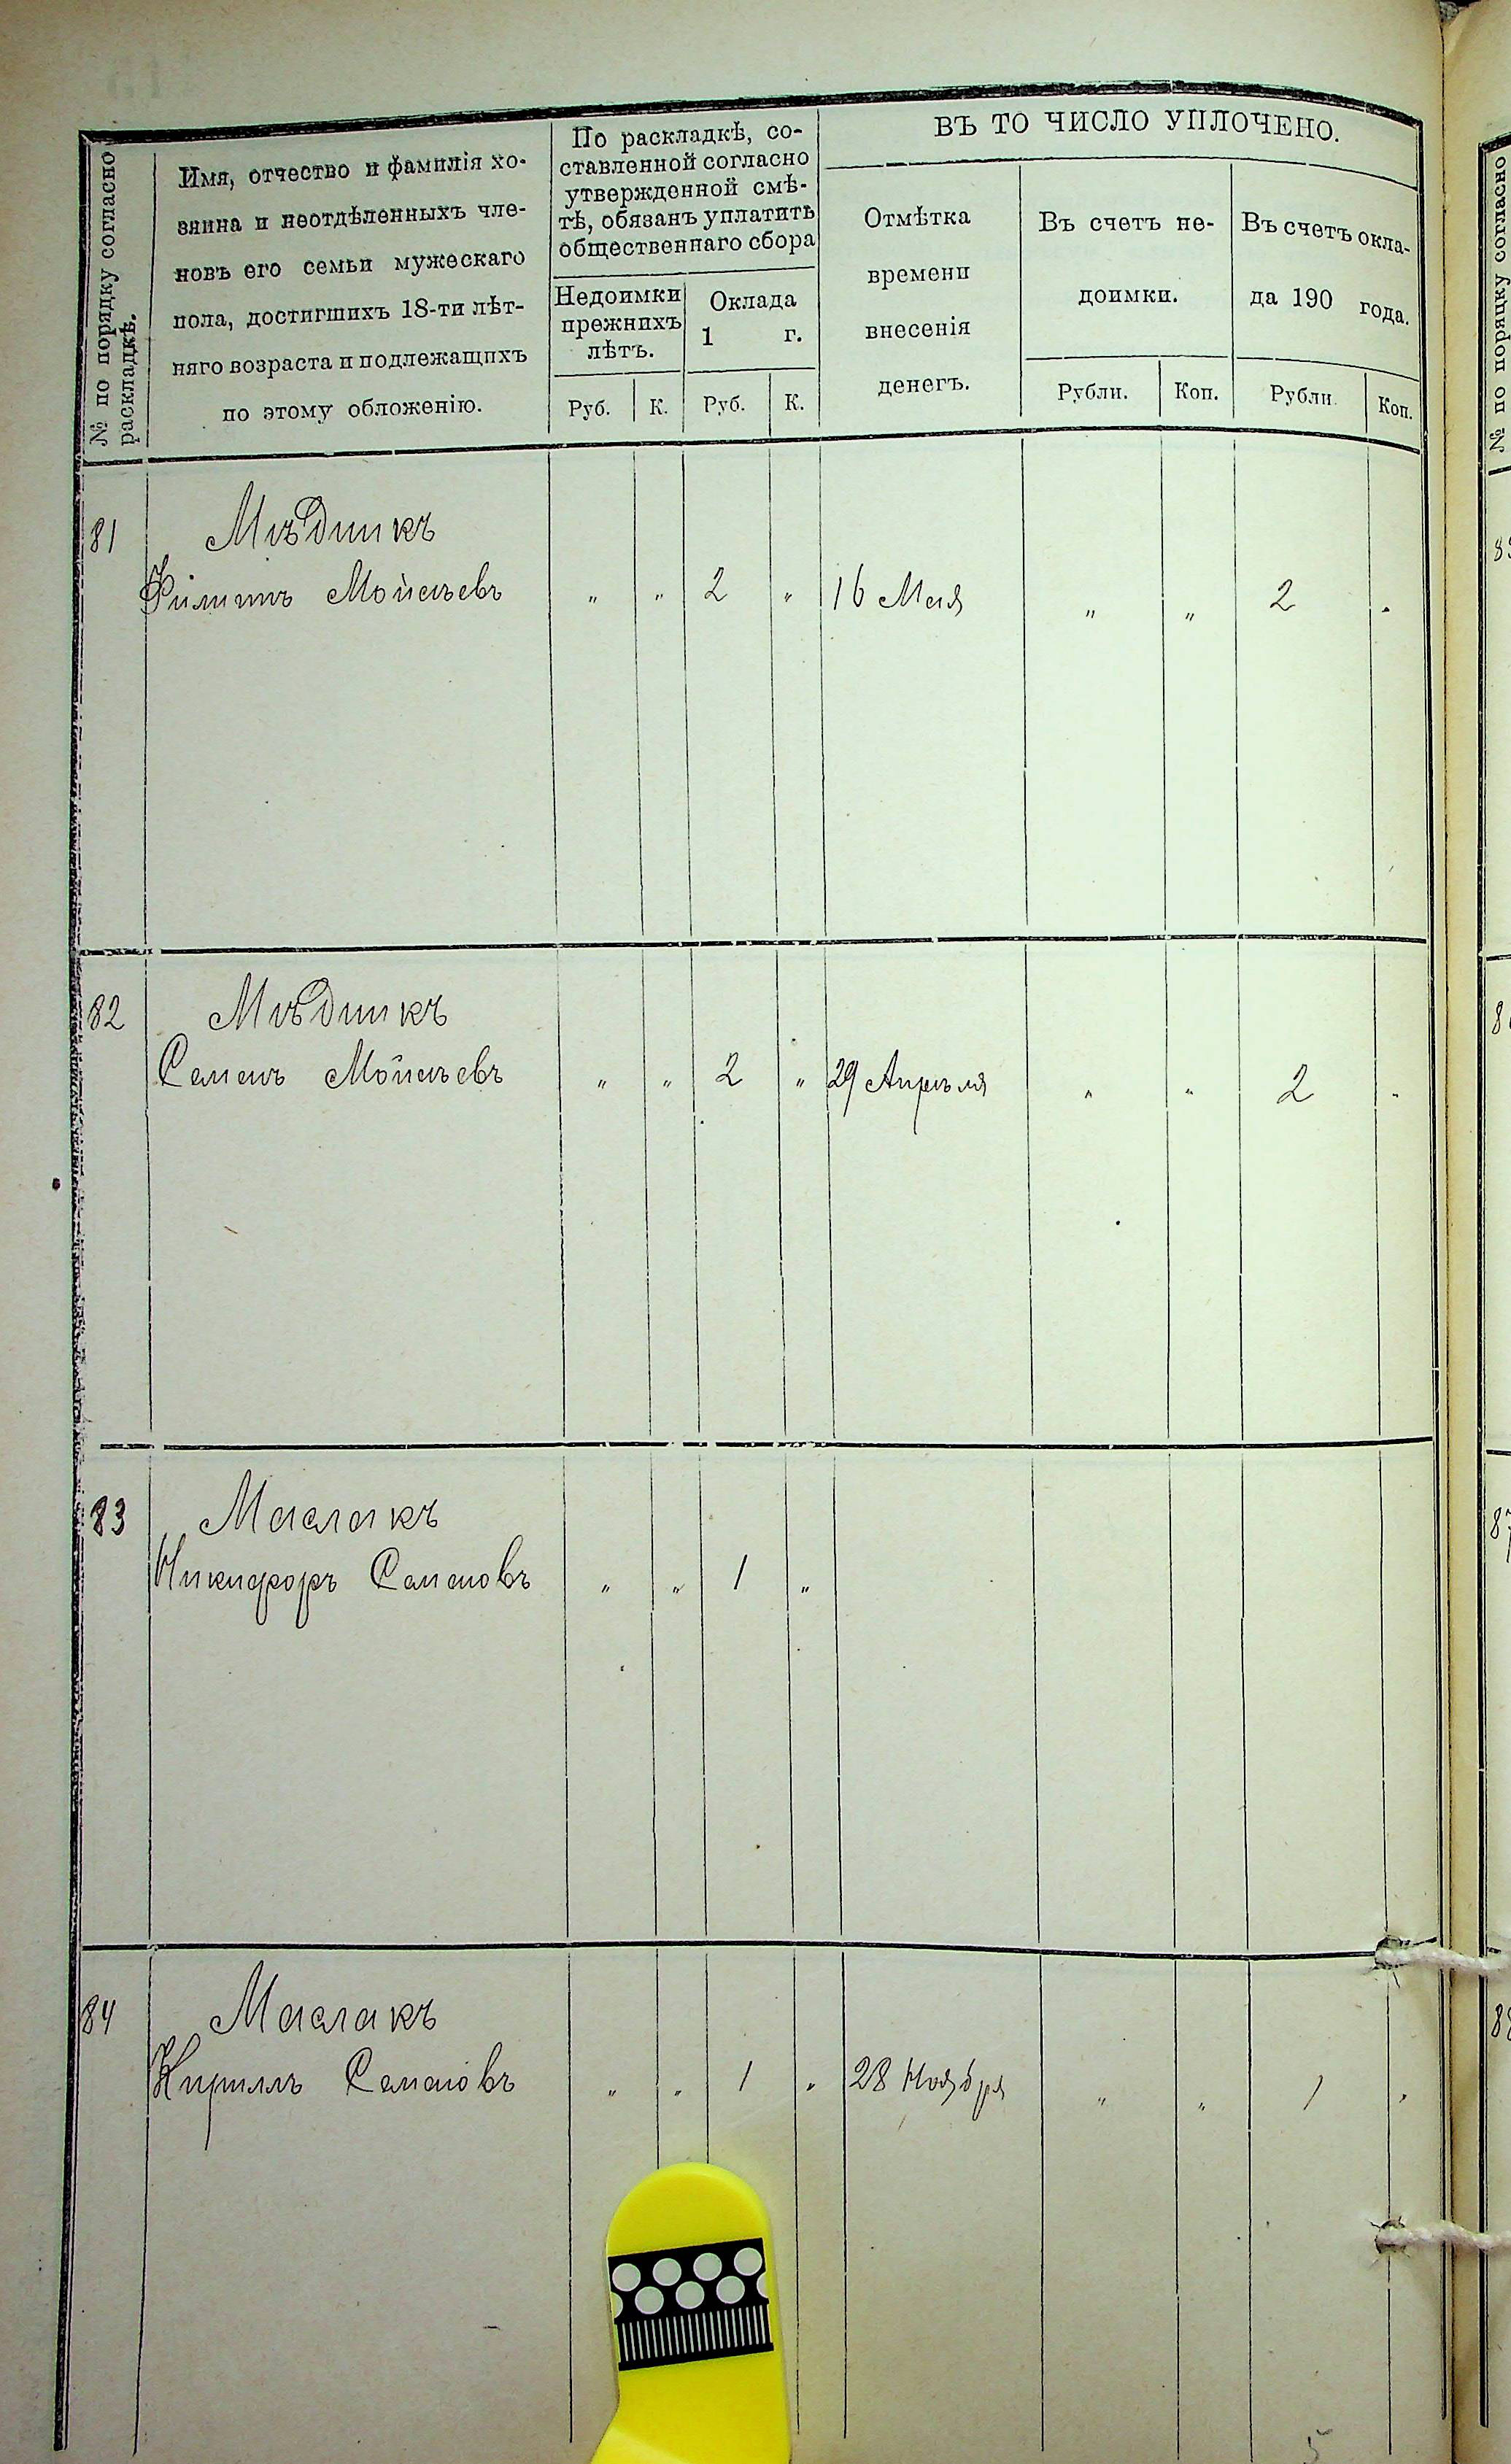 № по порядку согласно
раскладкѣ.
Имя, отчество и фамилія хо-
зяина и неотдѣленныхъ чле-
новъ его семьи мужескаго
пола, достигшихъ 18-ти лѣт-
няго возраста и подлежащихъ
по этому обложенію.
По раскладкѣ, со-
ставленной согласно
утвержденной смѣ-
тѣ, обязанъ уплатить
общественнаго сбора
Недоимки
прежнихъ
лѣтъ.
Оклада
1 г.
Руб. К. Руб. К.
ВЪ ТО ЧИСЛО УПЛОЧЕНО.
Отмѣтка
времени
внесенія
денегъ.
Въ счетъ не-
доимки.
Въ счетъ окла-
да 190 года.
Рубли. Коп. Рубли Коп.
81 Мѣдникъ
Филиппъ Мойсѣевъ " " 2 " 16 Мая " " 2 "
82 Мѣдникъ
Семенъ Мойсѣевъ " " 2 " 29 Апрѣля " " 2 "
83 Маслакъ
Никифоръ Семеновъ " " 1 "
84 Маслакъ
Кириллъ Семеновъ " " 1 " 28 Ноября " " 1 "
5
№ по порядку согласно